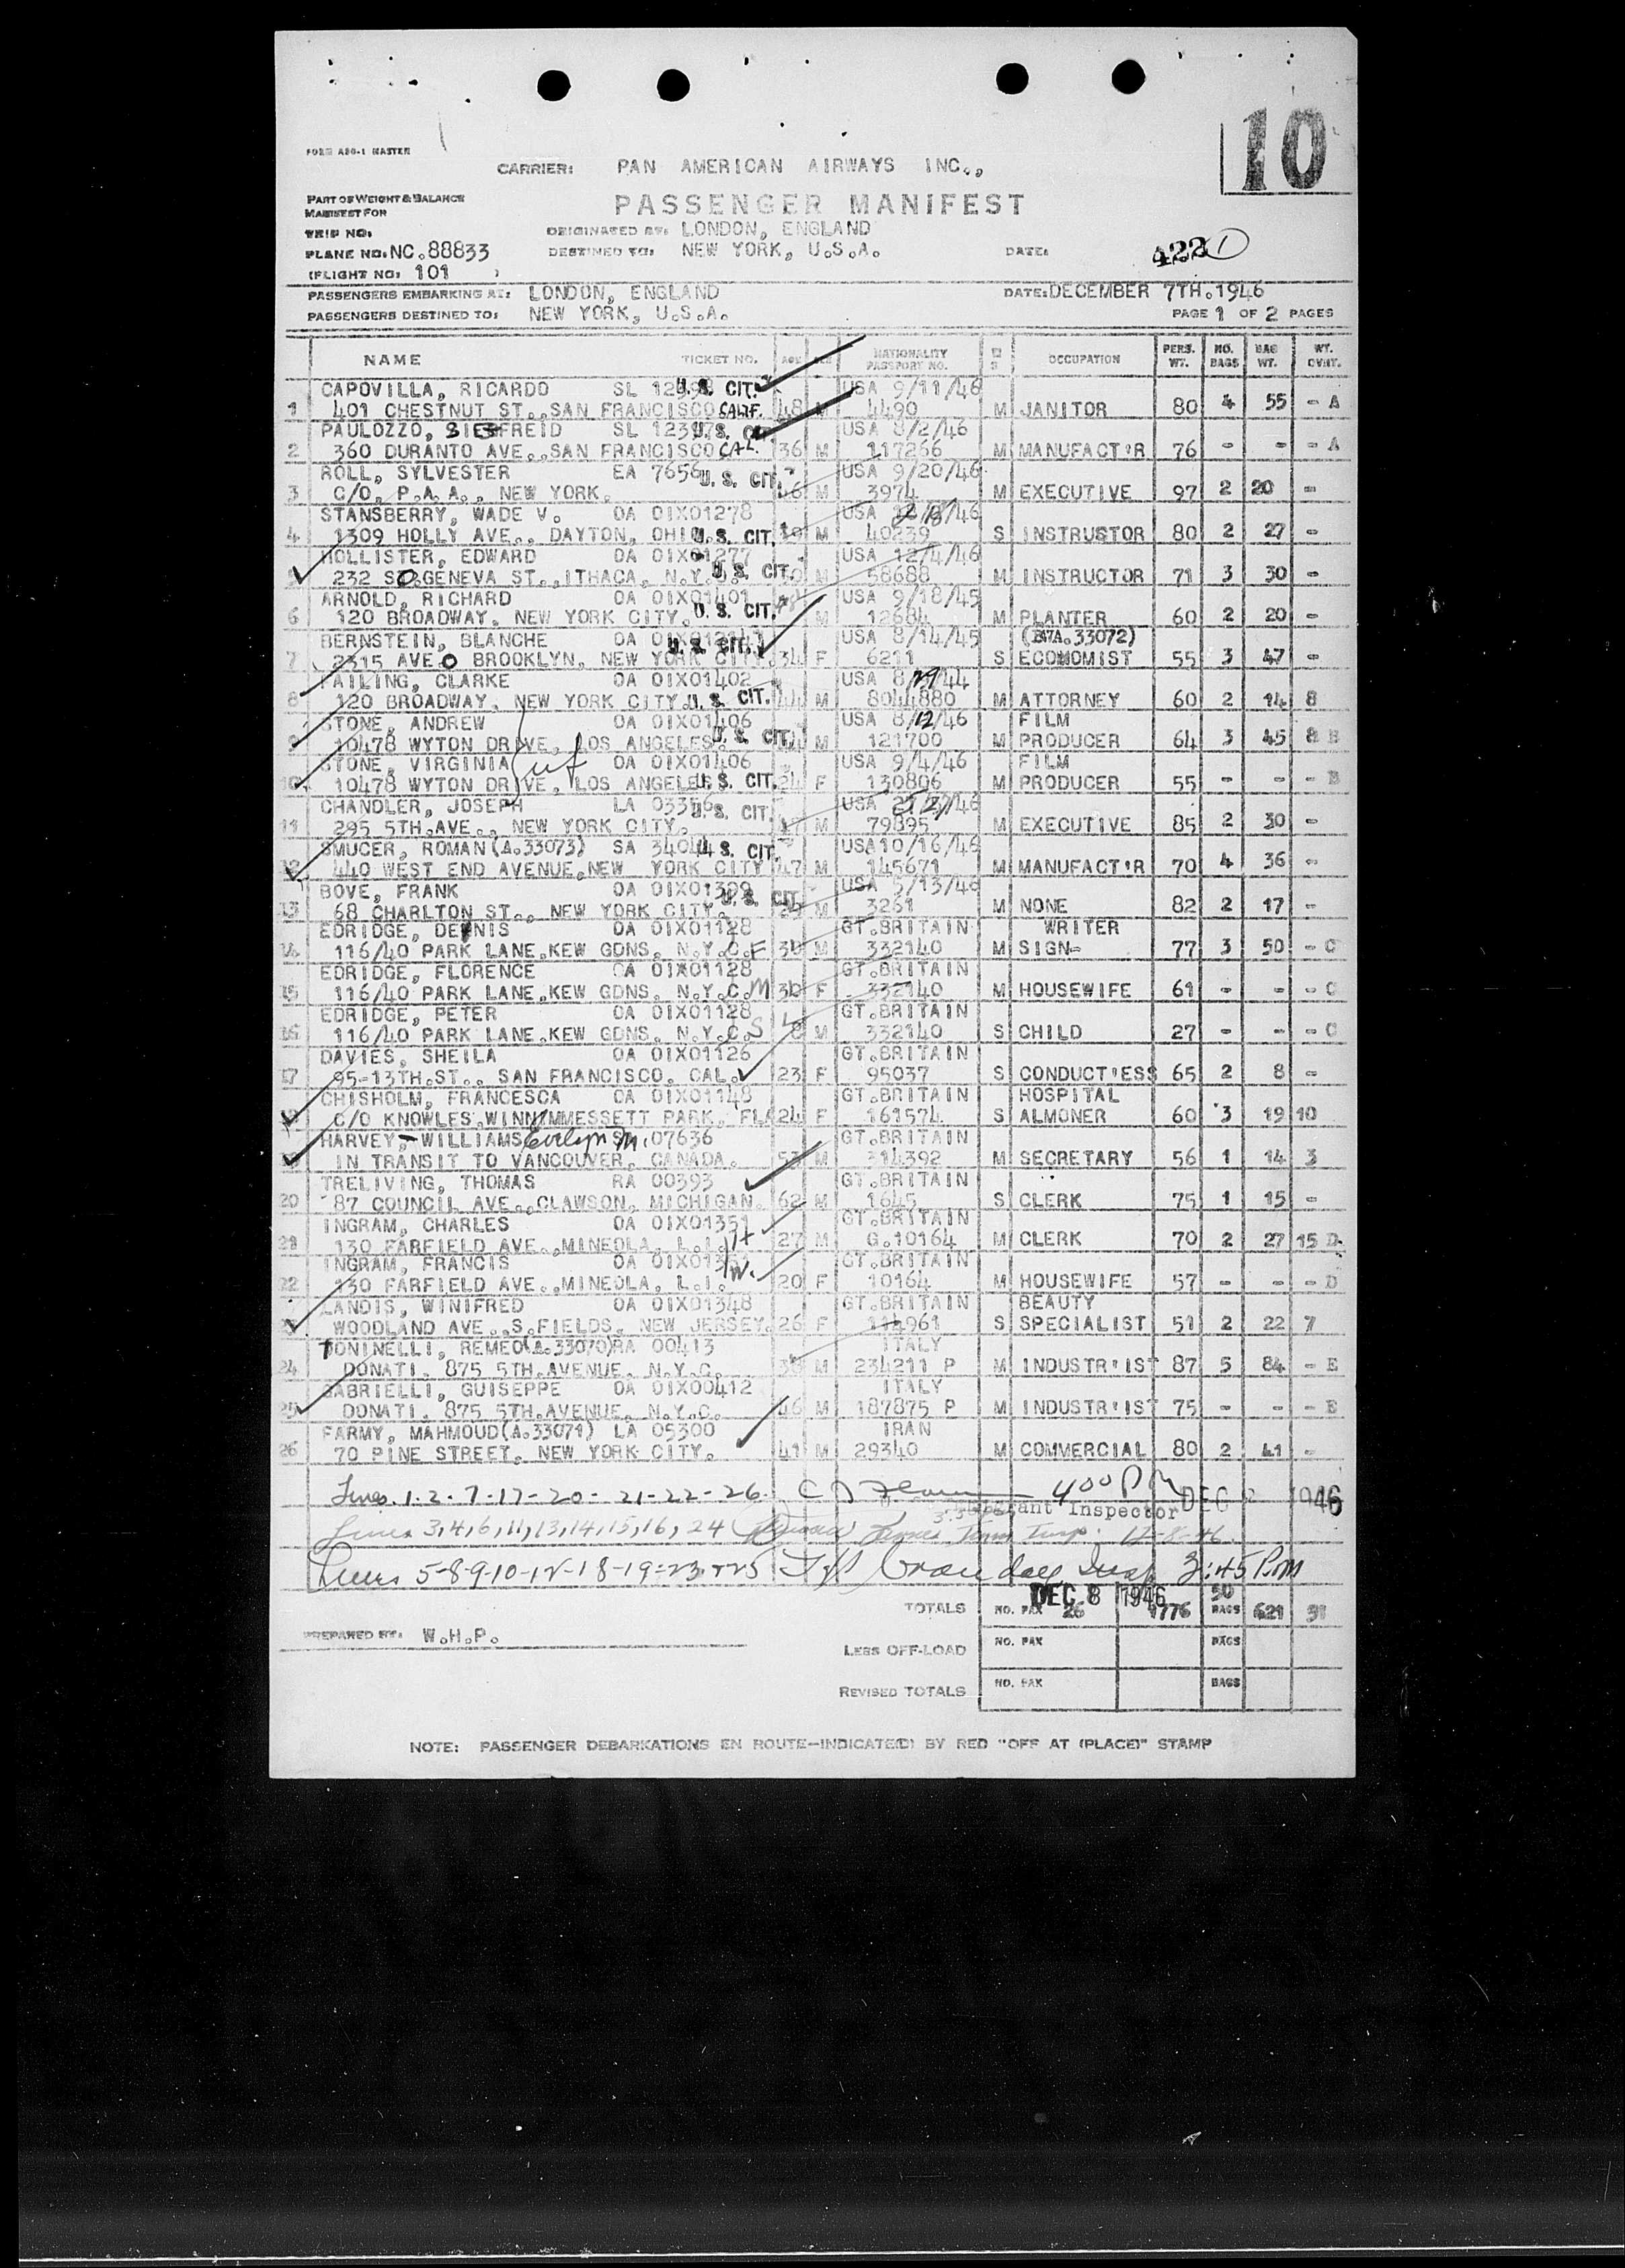 10
FORM ABG-1 MASTER
CARRIER: PAN AMERICAN AIRWAYS INC.,
PART OF WEIGHT & BALANCE
MANIFEST FOR
PASSENGER MANIFEST
TRIP NO:
ORIGINATED AT: LONDON, ENGLAND
PLANE NO: NC.88833
DESTINED TO: NEW YORK, U.S.A.
DATE:
422 1
(FLIGHT NO: 101 )
PASSENGERS EMBARKING AT: LONDON, ENGLAND DATE: DECEMBER 7TH.1946
PASSENGERS DESTINED TO: NEW YORK, U.S.A. PAGE 1 OF 2 PAGES
NAME TICKET NO. AGE SEX NATIONALITY PASSPORT NO. M S OCCUPATION PERS. WT. NO. BAGS BAG WT. WT. OVHT.
CAPOVILLA, RICARDO SL U.S. CIT. USA 9/11/46
1 401 CHESTNUT ST., SAN FRANCISCO CALIF. 48 M 4490 M JANITOR 80 4 55 - A
PAULOZZO, SIEGFREID SL U.S. USA 8/2/46
2 360 DURANTO AVE., SAN FRANCISCO CAL. 36 M 117266 M MANUFACT'R 76 - - - A
ROLL, SYLVESTER EA 7656 U.S. CIT. USA 9/20/46
3 C/O. P.A.A., NEW YORK. 46 M 3974 M EXECUTIVE 97 2 20 -
STANSBERRY, WADE V. OA OIX01278 USA /46
4 1309 HOLLY AVE., DAYTON, OHIO. U.S. CIT. M 40239 S INSTRUSTOR 80 2 27 -
HOLLISTER, EDWARD OA OIX01277 USA 12/4/46
5 232 SO.GENEVA ST., ITHACA, N.Y. U.S. CIT. M 58688 M INSTRUCTOR 71 3 30 -
ARNOLD, RICHARD OA OIX01401 USA 9/18/45
6 120 BROADWAY, NEW YORK CITY. U.S. CIT. M 12684 M PLANTER 60 2 20 -
BERNSTEIN, BLANCHE OA U.S. CIT. USA 8/14/45 (33072)
7 2315 AVE O BROOKLYN, NEW YORK CITY. 34 F 6211 S ECONOMIST 55 3 47 -
FAILING, CLARKE OA OIX01402 USA 8/29/44
8 120 BROADWAY, NEW YORK CITY. U.S. CIT. 44 M 8044880 M ATTORNEY 60 2 14 8
STONE, ANDREW OA OIX01406 USA 8/12/46 FILM
9 10478 WYTON DRIVE, LOS ANGELES. U.S. CIT. M 121700 M PRODUCER 64 3 45 8 B
STONE, VIRGINIA OA OIX01406 USA 9/4/46 FILM
10 10478 WYTON DRIVE, LOS ANGELES. U.S. CIT. 24 F 130806 M PRODUCER 55 - - - B
CHANDLER, JOSEPH LA 03356 U.S. CIT. USA /46
11 295 5TH.AVE., NEW YORK CITY. M 79895 M EXECUTIVE 85 2 30 -
SMUCER, ROMAN (A.33073) SA U.S. CIT. USA10/16/46
12 440 WEST END AVENUE,NEW YORK CITY 47 M 145671 M MANUFACT'R 70 4 36 -
BOVE, FRANK OA OIX01399 U.S. CIT. USA 5/13/46
13 68 CHARLTON ST., NEW YORK CITY. M 3261 M NONE 82 2 17 -
EDRIDGE, DENNIS OA OIX01128 GT.BRITAIN WRITER
14 116/40 PARK LANE,KEW GDNS, N.Y.C. F M 332140 M SIGN- 77 3 50 - C
EDRIDGE, FLORENCE OA OIX01128 GT.BRITAIN
15 116/40 PARK LANE,KEW GDNS, N.Y.C. M 36 F 332140 M HOUSEWIFE 61 - - - C
EDRIDGE, PETER OA OIX01128 GT.BRITAIN
16 116/40 PARK LANE,KEW GDNS, N.Y.C. S M 332140 S CHILD 27 - - - C
DAVIES, SHEILA OA OIX01126 GT.BRITAIN
17 95-13TH.ST., SAN FRANCISCO, CAL. 23 F 95037 S CONDUCT'ESS 65 2 8 -
CHISHOLM, FRANCESCA OA OIX01148 GT.BRITAIN HOSPITAL
18 C/O KNOWLES,WINN/MMESSETT PARK, FLA 24 F 161574 S ALMONER 60 3 19 10
HARVEY-WILLIAMS Evelyn M. 07636 GT.BRITAIN
19 IN TRANSIT TO VANCOUVER, CANADA. 53 M 314392 M SECRETARY 56 1 14 3
TRELIVING, THOMAS RA 00393 GT.BRITAIN
20 87 COUNCIL AVE.,CLAWSON, MICHIGAN. 62 M 1645 S CLERK 75 1 15 -
INGRAM, CHARLES OA OIX01351 GT.BRITAIN
21 130 FARFIELD AVE.,MINEOLA, L.I. H 27 M G.10164 M CLERK 70 2 27 15 D
INGRAM, FRANCIS OA OIX01351 GT.BRITAIN
22 130 FARFIELD AVE.,MINEOLA, L.I. W. 20 F 10164 M HOUSEWIFE 57 - - - D
LANOIS, WINIFRED OA OIX01348 GT.BRITAIN BEAUTY
23 WOODLAND AVE.,S.FIELDS, NEW JERSEY. 26 F 114961 S SPECIALIST 51 2 22 7
TONINELLI, REMEO(A.33070)RA 00413 ITALY
24 DONATI, 875 5TH.AVENUE, N.Y.C. 38 M 234211 P M INDUSTR'IST 87 5 84 - E
GABRIELLI, GUISEPPE OA OIX00412 ITALY
25 DONATI, 875 5TH.AVENUE, N.Y.C. 46 M 187875 P M INDUSTR'IST 75 - - - E
FARMY, MAHMOUD(A.33071) LA 05300 IRAN
26 70 PINE STREET, NEW YORK CITY. 41 M 29340 M COMMERCIAL 80 2 41 -
Lines 1-2-7-17-20-21-22-26. 400 PM DEC 1946
Immigrant Inspector
Lines 3,4,6,11,13,14,15,16,24 Insp. 12-8-46.
Lines 5-8-9-10-12-18-19-23+25 Insp 3:45 P.M
DEC 8 1946 50
TOTALS NO. PAX 26 1776 BAGS 621 51
PREPARED BY: W.H.P.
LESS OFF-LOAD NO. PAX BAGS
REVISED TOTALS NO. PAX BAGS
NOTE: PASSENGER DEBARKATIONS EN ROUTE—INDICATE(D) BY RED "OFF AT (PLACE)" STAMP